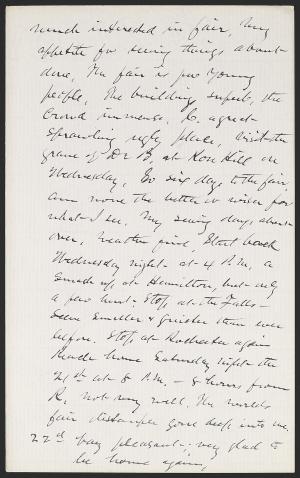 much interested in fair, My
appetite for seeing things about
done, The fair is for Young
people, The buildings superb, the
Crowd immense. C. a great
sprawling ugly place, Visit the
grave of Dr B, at Rose Hill on
Wednesday, Go six days to the fair,
am none the better or wiser for
what I see. My seeing days about
over, weather fine, Start back
Wednesday night - at 4 A.M. a
smash up, at Hamilton, but only
a few hurt. Stop at the Falls -
seem smaller & quieter than ever
before. Stop at Rochester again
Reach home Saturday night the
21st at 8 P.M. - 8 hours from
R, not very well. The worlds
fair distemper gone deep into me.
22nd Day pleasant; very glad to
be home again,